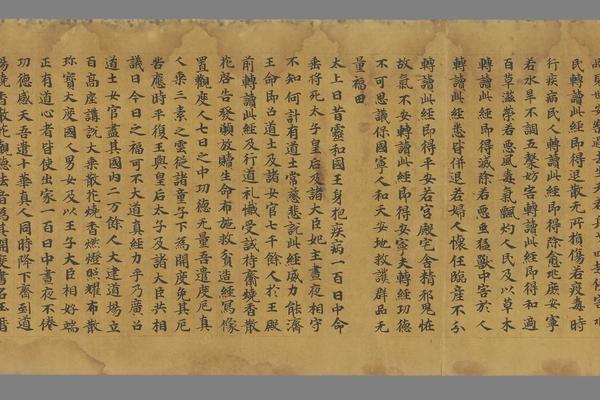 民轉讀此經即得退散无所損傷若疫毒時
行疾病民人轉讀此經即得除愈兆庶安寧
若水旱不調五檠妨害轉讀此經即得和適
百草滋榮若惡風毒氣飄灼人民及以草木
轉讀此經即得滅除若惡虫猛獸中害於人
轉讀此經悉皆併退若婦人懷任臨產不分
轉讀此經即得平安若宮殿宅舍精邪鬼恠
故氣不安轉讀此經即得安寧夫轉經功德
不可思議保國寧人和天安地救護群品无
量福田
太上曰昔靈和國王身抱疾病一百日中命
垂將死太子皇后及諸大臣妃主晝夜相守
不知何計有道士常悉悲說此經威力能濟
王命即召道士及諸女官七千餘人於王殿
前轉讀此經及行道礼懺受誡持齋燒香散
花啓告發願放贖生命布施救貧造經寫像
置觀度人七日之中功德无量吾遣度厄真
人乘三素之雲從諸童子下為開度免其厄
咎應時平復王與皇后太子及諸大臣共相
議曰今日之福可不大道真經力乎乃廣召
道士女官盡其國內二万餘人大建道場立
百高座講說大乘散花燒香燃燈照耀布散
珎寶大度國人男女及以王子大臣相好端
正有道心者皆使出家一百日中晝夜不倦
功德感天吾遣十華真人同時降下齋到道
場燒香散花觀聽法音為其開度書名玉曆